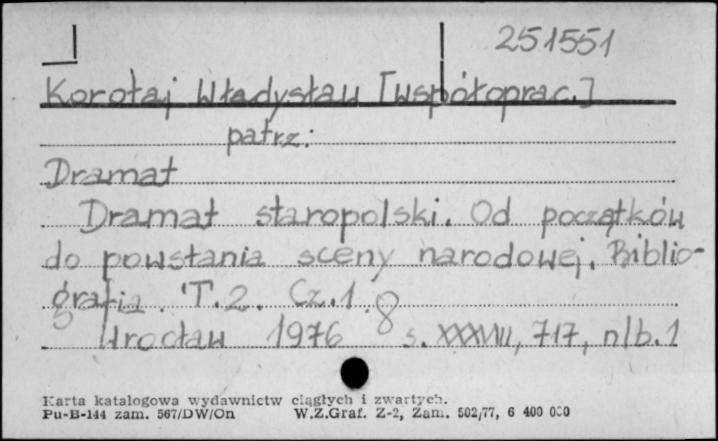 251551
Korotaj Władysław [współoprac.]
patrz:
Dramat
Dramat staropolski. Od początków
do powstania sceny narodowej. Biblio-
grafia. T.2. Cz.1. 8
Wrocław 1976 s. XXXVIII, 717, nlb. 1
Karta katalogowa wydawnictw ciągłych i zwartych.
Pu-B-144 zam. 567/DW/On W.Z.Graf. Z-2, Zam. 502/77, 6 400 000